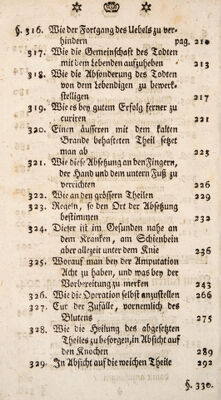 §. 316. Wie der Fortgang des Uebels zu ver-
hindern pag. 210
317. Wie die Gemeinschaft des Todten
mit dem Lebenden aufzuheben 213
318. Wie die Absonderung des Todten
von dem Lebendigen zu bewerk-
stelligen 217
319. Wie es bey gutem Erfolg ferner zu
curiren 221
320. Einen äusseren mit dem kalten
Brande behafteten Theil setzet
man ab 225
321. Wie diese Absetzung an den Fingern,
der Hand und dem untern Fuß zu
verrichten 226
322. Wie an den grössern Theilen 229
323. Regeln, so den Ort der Absetzung
bestimmen 232
324. Dieser ist im Gesunden nahe an
dem Kranken, am Schienbein
aber allezeit unter dem Knie 236
325. Worauf man bey der Amputation
Acht zu haben, und was bey der
Vorbereitung zu merken 243
326. Wie die Operation selbst anzustellen 266
327. Cur der Zufälle, vornemlich des
Blutens 275
328. Wie die Heilung des abgesetzten
Theiles zu besorgen, in Absicht auf
den Knochen 289
329. In Absicht auf die weichen Theile 292
§. 330.